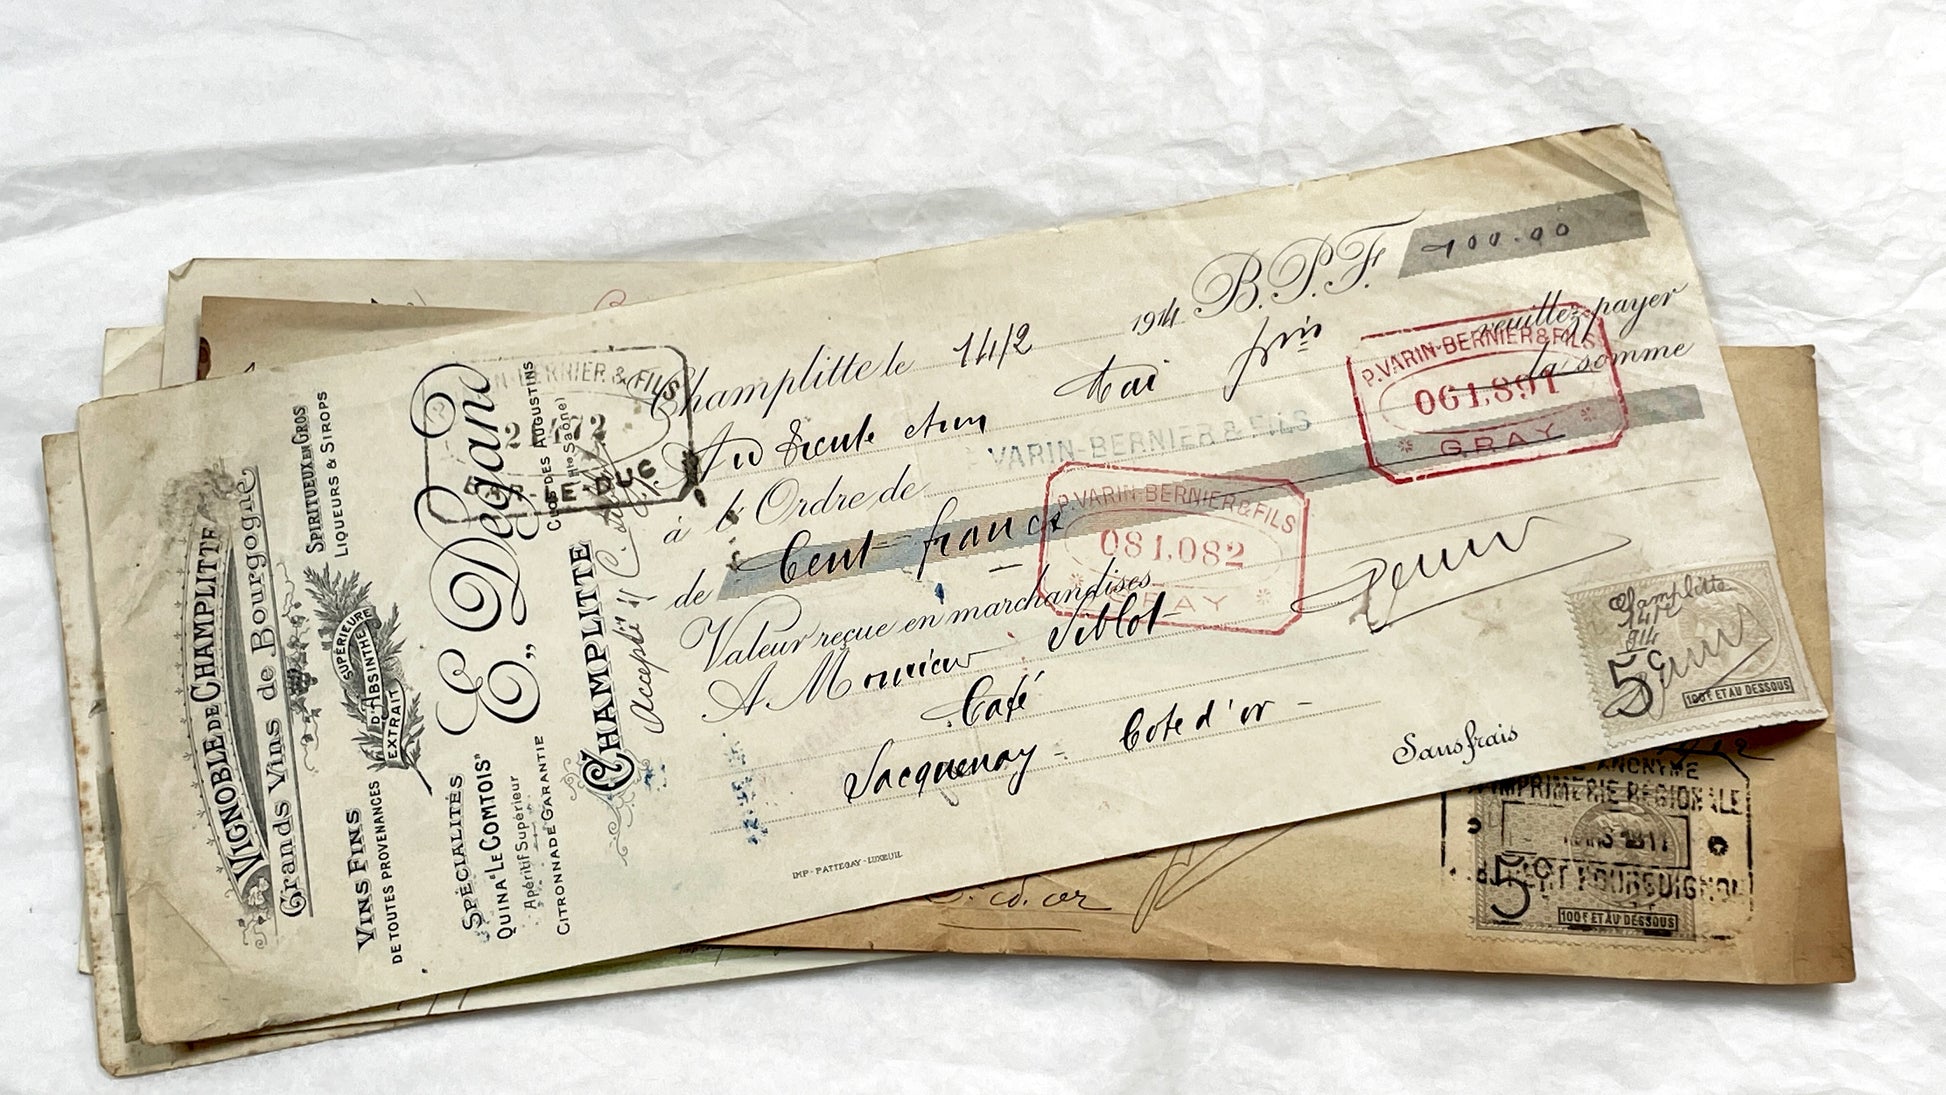 VIGNOBLE DE CHAMPLITTE
Grands Vins de Bourgogne
SPIRITUEUX EN GROS
LIQUEURS & SIROPS
VINS FINS
DE TOUTES PROVENANCES
SUPÉRIEURE
D'ABSINTHE
EXTRAIT
E. Degand
SPÉCIALITÉS
QUINA "LE COMTOIS"
Apéritif Supérieur
CITRONNADE GARANTIE
CLOS DES AUGUSTINS
(Hte Saône)
CHAMPLITTE
Accepté
BERNIER & FILS
LE-DUC
B.P.F. 100.00
Champlitte le 14/2 1914
Au trente et un Mai prix veuillez payer
à l'Ordre de VARIN-BERNIER & FILS la somme
de Cent francs
Valeur reçue en marchandises
A Monsieur
Café
Sacquenay - Cote d'or -
Sans frais
IMP. PATTEGAY-LUXEUIL
P. VARIN-BERNIER & FILS
061,891
GRAY
P. VARIN-BERNIER & FILS
081,082
GRAY
Champlitte
14/2
914
5c
100F ET AU DESSOUS
ANONYME
IMPRIMERIE REGIONALE
5c
100F ET AU DESSOUS